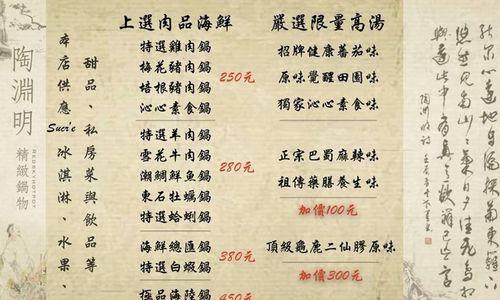 陶淵明
精緻鍋物
REDSKYHOTPOT
本店供應Sucr'e冰淇淋、水果、
甜品、私房菜與飲品等
上選肉品海鮮
特選雞肉鍋
梅花豬肉鍋
培根豬肉鍋
沁心素食鍋
250元
特選羊肉鍋
雪花牛肉鍋
潮鯛鮮魚鍋
東石牡蠣鍋
特選蛤蜊鍋
280元
海鮮總匯鍋
特選白蝦鍋
380元
極品海陸鍋
450元
嚴選限量高湯
招牌健康蕃茄味
原味覺醒田園味
獨家沁心素食味
正宗巴蜀麻辣味
祖傳藥膳養生味
加價100元
頂級龜鹿二仙膠原味
加價300元
採菊東籬下
悠然見南山
山氣日夕佳
飛鳥
還
此中有真意
欲辯已忘言
陶淵明詩